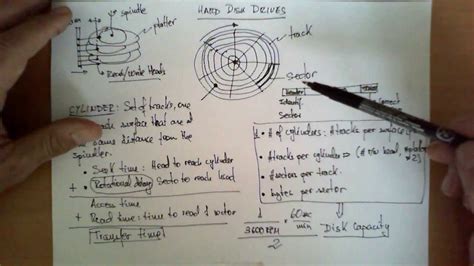 HARD DISK DRIVES
spindle
platter
Read/write Heads
track
Sector
Header
Identify
Sector
CYLINDER: Set of tracks, one
surface that are at
same distance from the
Spindler.
• Seek time: Head to reach cylinder
+ Rotational delay: Sector to reach head
Access time
+ Read time: time to read 1 sector
Transfer time
# of cylinders: #tracks per surface
• #tracks per cylinder => (# R/W head,
*2)
• #sectors per track.
• bytes per sector
1
3600 RPM
60 sec
min
2
Disk Capacity